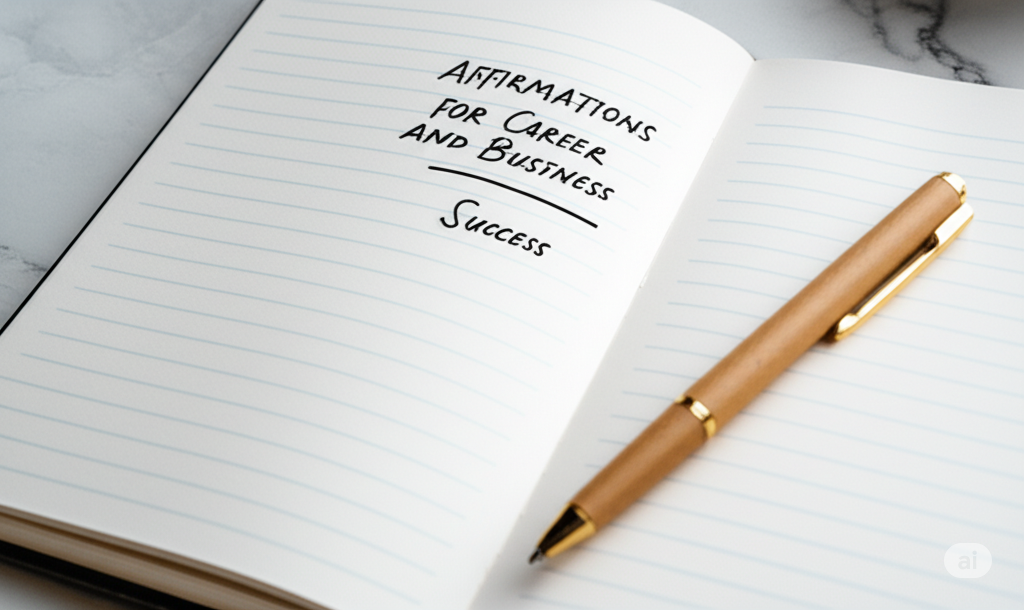 AFFIRMATIONS
FOR CAREER
AND BUSINESS
SUCCESS
ai